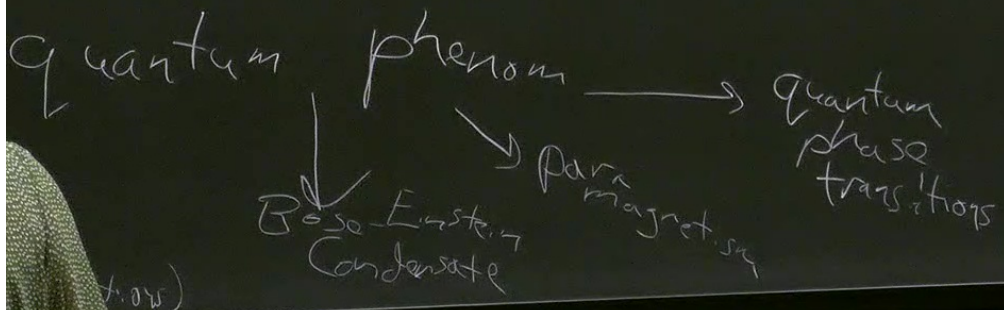 quantum phenom
quantum
phase
transitions
para
magnetism
Bose-Einstein
Condensate